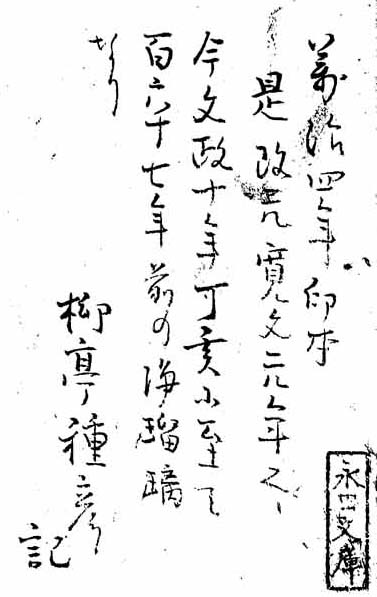 萬治四年印本
是改元寛文元年
今文政十年丁亥に至て
百六十七年前の浄瑠璃
なり
柳亭種彦
記
永田文庫